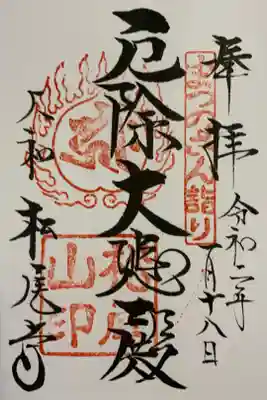 奉拝
令和二年
一月十八日
まつのさん詣り
厄除大黒殿
大和
松尾寺
松尾山印